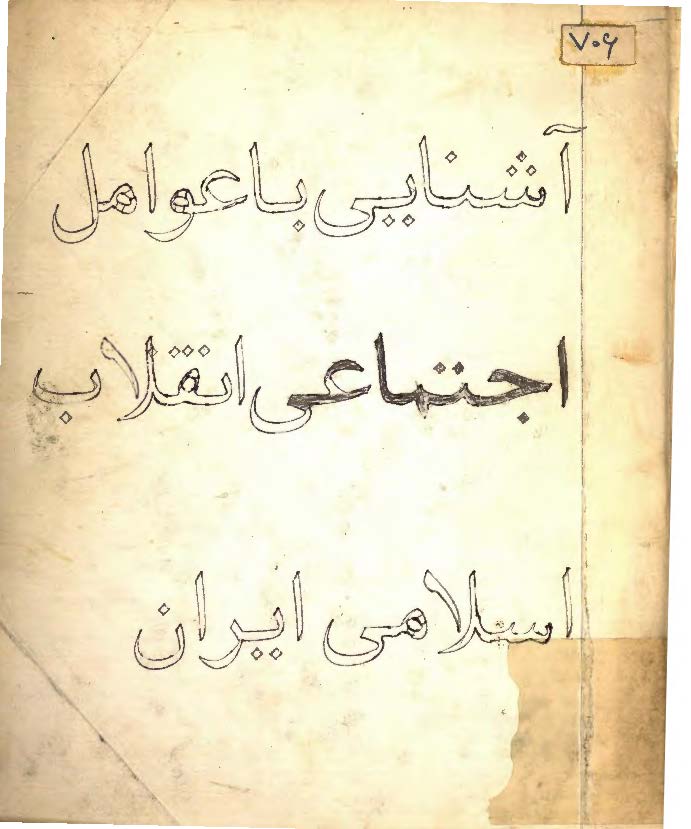 ۷۰۶
آشنایی با عوامل
اجتماعی انقلاب
اسلامی ایران